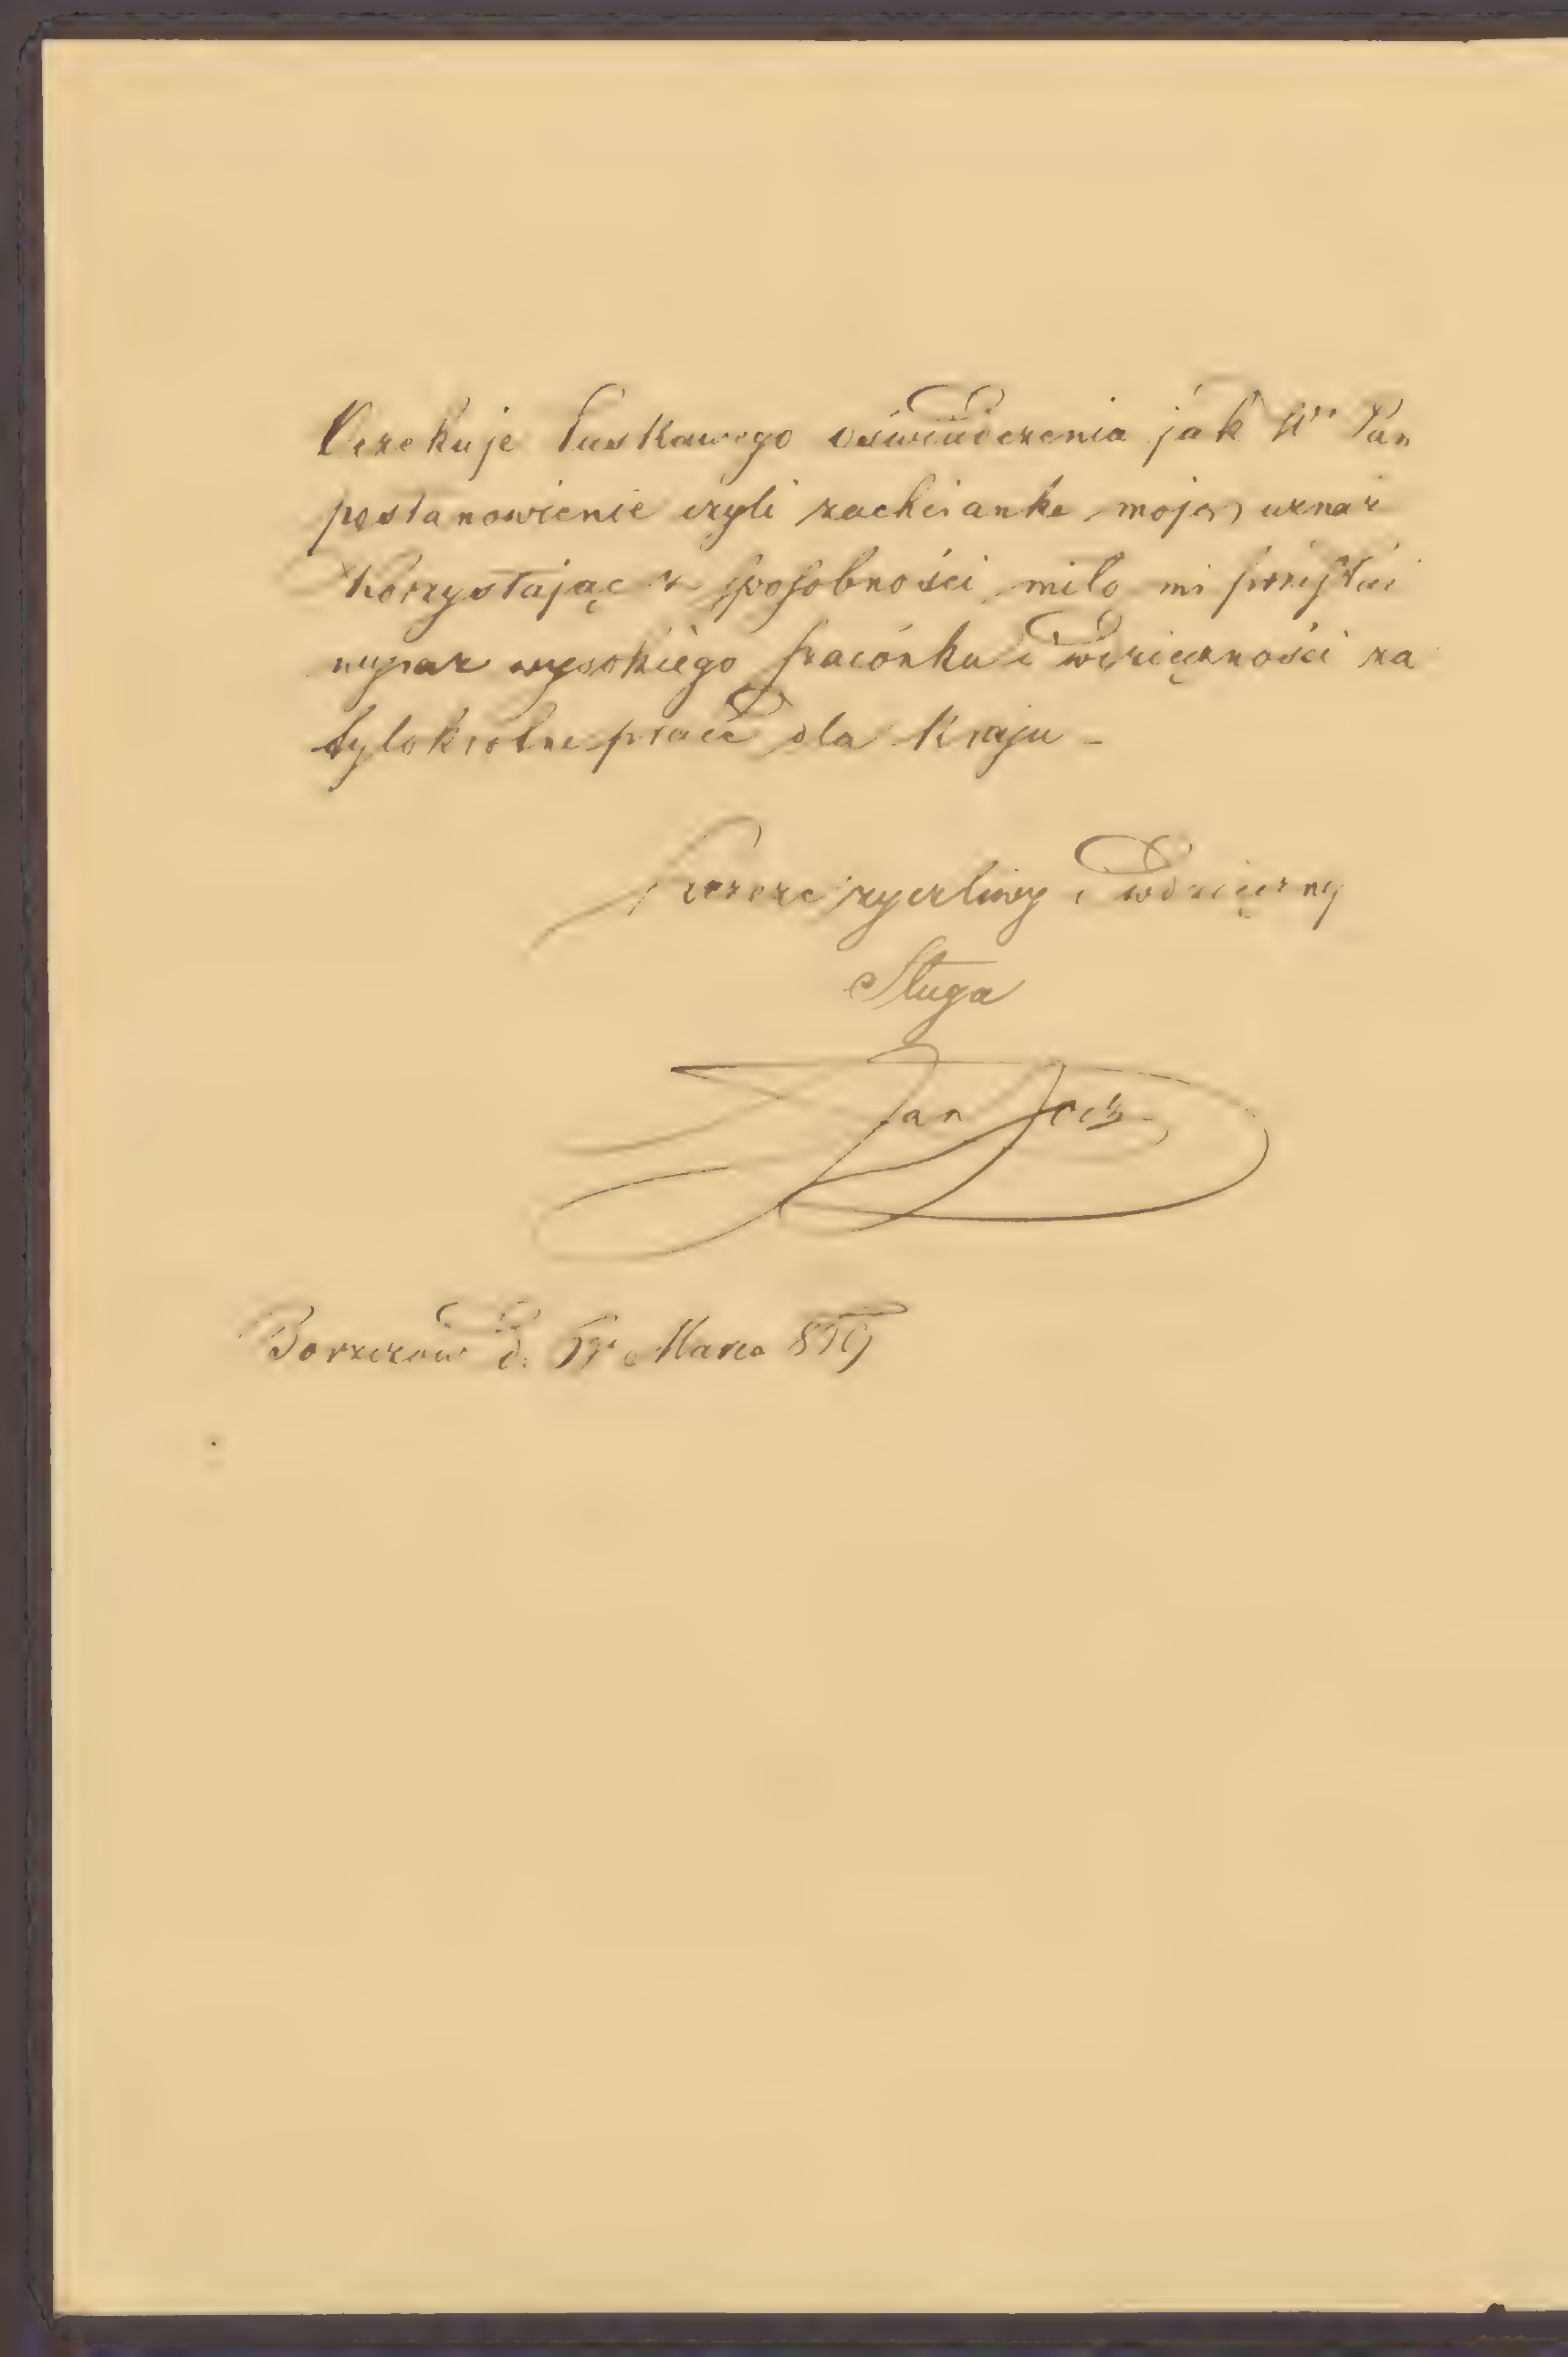 Oczekuje łaskawego oświadczenia jak Wn Pan
postanowienie czyli zachcianke moje uzna
Korzystając z sposobności miło mi przesłać
wyraz wysokiego szacónku i wdzięczności za
tylokrotne prace dla Kraju –
Szczerze życzliwy i wdzięczny
Sługa
Jan
Borzczow d. Marca